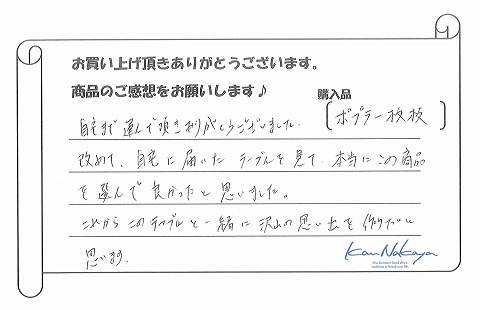 お買い上げ頂きありがとうございます。
商品のご感想をお願いします♪
購入品
〔ポプラ一枚板〕
自宅まで運んで頂きありがとうございました。
改めて、自宅に届いたテーブルを見て、本当にこの商品
を選んで良かったと思いました。
これからこのテーブルと一緒に沢山の思い出を作りたいと
思います。
Kan Nakaya